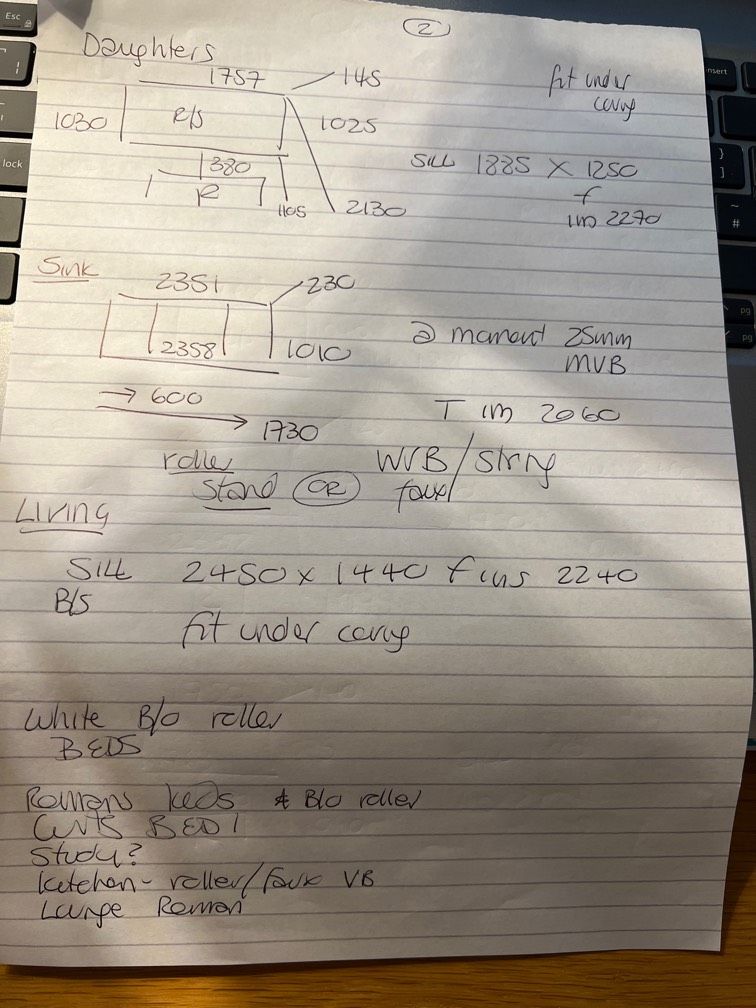 2
Daughters
1757 145
fit under
coving
1030 R/S 1025
SILL 1885 X 1250
f
ins 2270
1380
R
1105 2130
Sink
2351 230
2358 1010
@ moment 25mm
MVB
→ 600
T im 2060
1730
roller WVB/String
Stand OR faux
LIVING
SILL 2450 x 1440 f ins 2240
B/S
fit under coving
White B/o roller
BEDS
Romans keds & B/o roller
CUNTS BED 1
Study?
kitchen - roller/faux VB
Lounge Roman
Esc
lock
nsert
}
]
~
#
pg
pg